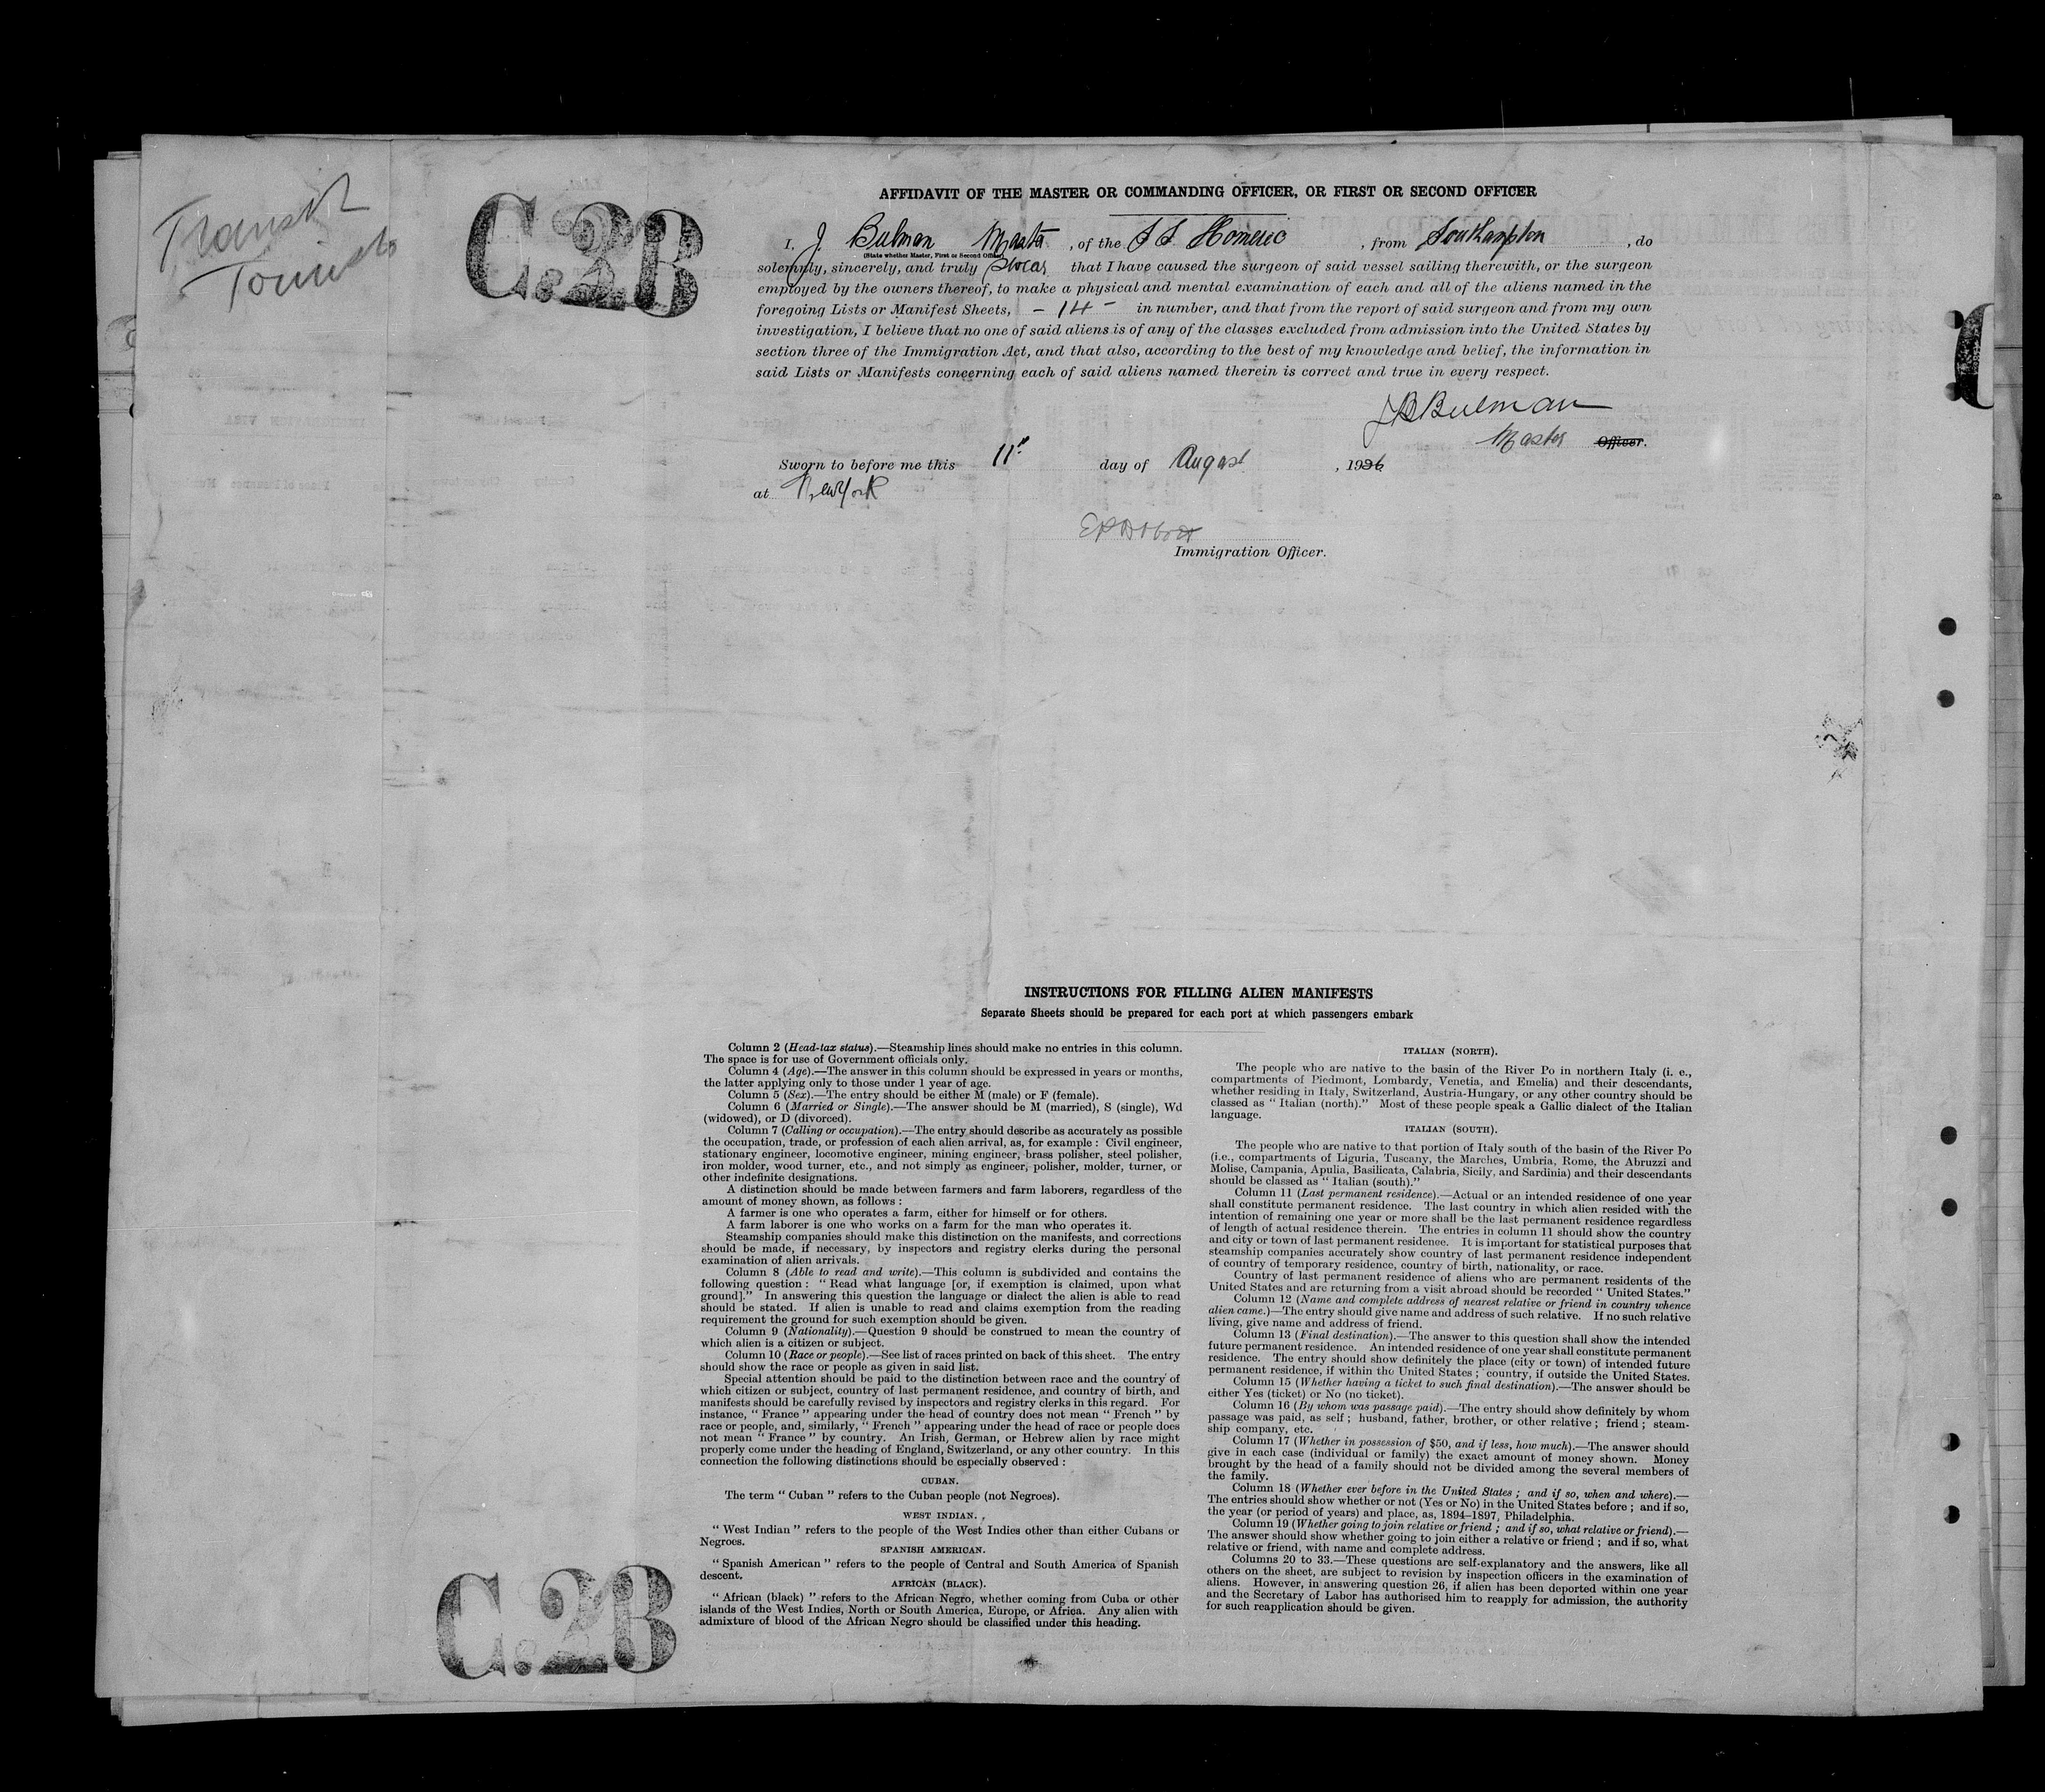 Transit
Tourists
C.2B
AFFIDAVIT OF THE MASTER OR COMMANDING OFFICER, OR FIRST OR SECOND OFFICER
I, J Bulman Master, of the S S Homeric, from Southampton, do
(State whether Master, First or Second Officer)
solemnly, sincerely, and truly swear that I have caused the surgeon of said vessel sailing therewith, or the surgeon
employed by the owners thereof, to make a physical and mental examination of each and all of the aliens named in the
foregoing Lists or Manifest Sheets, - 14 - in number, and that from the report of said surgeon and from my own
investigation, I believe that no one of said aliens is of any of the classes excluded from admission into the United States by
section three of the Immigration Act, and that also, according to the best of my knowledge and belief, the information in
said Lists or Manifests concerning each of said aliens named therein is correct and true in every respect.
Bulman
Master Officer.
Sworn to before me this 11" day of August, 1926
at New York
Immigration Officer.
INSTRUCTIONS FOR FILLING ALIEN MANIFESTS
Separate Sheets should be prepared for each port at which passengers embark
Column 2 (Head-tax status).—Steamship lines should make no entries in this column.
The space is for use of Government officials only.
Column 4 (Age).—The answer in this column should be expressed in years or months,
the latter applying only to those under 1 year of age.
Column 5 (Sex).—The entry should be either M (male) or F (female).
Column 6 (Married or Single).—The answer should be M (married), S (single), Wd
(widowed), or D (divorced).
Column 7 (Calling or occupation).—The entry should describe as accurately as possible
the occupation, trade, or profession of each alien arrival, as, for example : Civil engineer,
stationary engineer, locomotive engineer, mining engineer, brass polisher, steel polisher,
iron molder, wood turner, etc., and not simply as engineer, polisher, molder, turner, or
other indefinite designations.
A distinction should be made between farmers and farm laborers, regardless of the
amount of money shown, as follows :
A farmer is one who operates a farm, either for himself or for others.
A farm laborer is one who works on a farm for the man who operates it.
Steamship companies should make this distinction on the manifests, and corrections
should be made, if necessary, by inspectors and registry clerks during the personal
examination of alien arrivals.
Column 8 (Able to read and write).—This column is subdivided and contains the
following question : " Read what language [or, if exemption is claimed, upon what
ground]." In answering this question the language or dialect the alien is able to read
should be stated. If alien is unable to read and claims exemption from the reading
requirement the ground for such exemption should be given.
Column 9 (Nationality).—Question 9 should be construed to mean the country of
which alien is a citizen or subject.
Column 10 (Race or people).—See list of races printed on back of this sheet. The entry
should show the race or people as given in said list.
Special attention should be paid to the distinction between race and the country of
which citizen or subject, country of last permanent residence, and country of birth, and
manifests should be carefully revised by inspectors and registry clerks in this regard. For
instance, " France " appearing under the head of country does not mean " French " by
race or people, and, similarly, " French " appearing under the head of race or people does
not mean " France " by country. An Irish, German, or Hebrew alien by race might
properly come under the heading of England, Switzerland, or any other country. In this
connection the following distinctions should be especially observed :
CUBAN.
The term " Cuban " refers to the Cuban people (not Negroes).
WEST INDIAN.
" West Indian " refers to the people of the West Indies other than either Cubans or
Negroes.
SPANISH AMERICAN.
" Spanish American " refers to the people of Central and South America of Spanish
descent.
AFRICAN (BLACK).
" African (black) " refers to the African Negro, whether coming from Cuba or other
islands of the West Indies, North or South America, Europe, or Africa. Any alien with
admixture of blood of the African Negro should be classified under this heading.
ITALIAN (NORTH).
The people who are native to the basin of the River Po in northern Italy (i. e.,
compartments of Piedmont, Lombardy, Venetia, and Emelia) and their descendants,
whether residing in Italy, Switzerland, Austria-Hungary, or any other country should be
classed as " Italian (north)." Most of these people speak a Gallic dialect of the Italian
language.
ITALIAN (SOUTH).
The people who are native to that portion of Italy south of the basin of the River Po
(i.e., compartments of Liguria, Tuscany, the Marches, Umbria, Rome, the Abruzzi and
Molise, Campania, Apulia, Basilicata, Calabria, Sicily, and Sardinia) and their descendants
should be classed as " Italian (south)."
Column 11 (Last permanent residence).—Actual or an intended residence of one year
shall constitute permanent residence. The last country in which alien resided with the
intention of remaining one year or more shall be the last permanent residence regardless
of length of actual residence therein. The entries in column 11 should show the country
and city or town of last permanent residence. It is important for statistical purposes that
steamship companies accurately show country of last permanent residence independent
of country of temporary residence, country of birth, nationality, or race.
Country of last permanent residence of aliens who are permanent residents of the
United States and are returning from a visit abroad should be recorded " United States."
Column 12 (Name and complete address of nearest relative or friend in country whence
alien came.)—The entry should give name and address of such relative. If no such relative
living, give name and address of friend.
Column 13 (Final destination).—The answer to this question shall show the intended
future permanent residence. An intended residence of one year shall constitute permanent
residence. The entry should show definitely the place (city or town) of intended future
permanent residence, if within the United States ; country, if outside the United States.
Column 15 (Whether having a ticket to such final destination).—The answer should be
either Yes (ticket) or No (no ticket).
Column 16 (By whom was passage paid).—The entry should show definitely by whom
passage was paid, as self ; husband, father, brother, or other relative ; friend ; steam-
ship company, etc.
Column 17 (Whether in possession of $50, and if less, how much).—The answer should
give in each case (individual or family) the exact amount of money shown. Money
brought by the head of a family should not be divided among the several members of
the family.
Column 18 (Whether ever before in the United States ; and if so, when and where).—
The entries should show whether or not (Yes or No) in the United States before ; and if so,
the year (or period of years) and place, as, 1894–1897, Philadelphia.
Column 19 (Whether going to join relative or friend ; and if so, what relative or friend).—
The answer should show whether going to join either a relative or friend ; and if so, what
relative or friend, with name and complete address.
Columns 20 to 33.—These questions are self-explanatory and the answers, like all
others on the sheet, are subject to revision by inspection officers in the examination of
aliens. However, in answering question 26, if alien has been deported within one year
and the Secretary of Labor has authorised him to reapply for admission, the authority
for such reapplication should be given.
C.2B